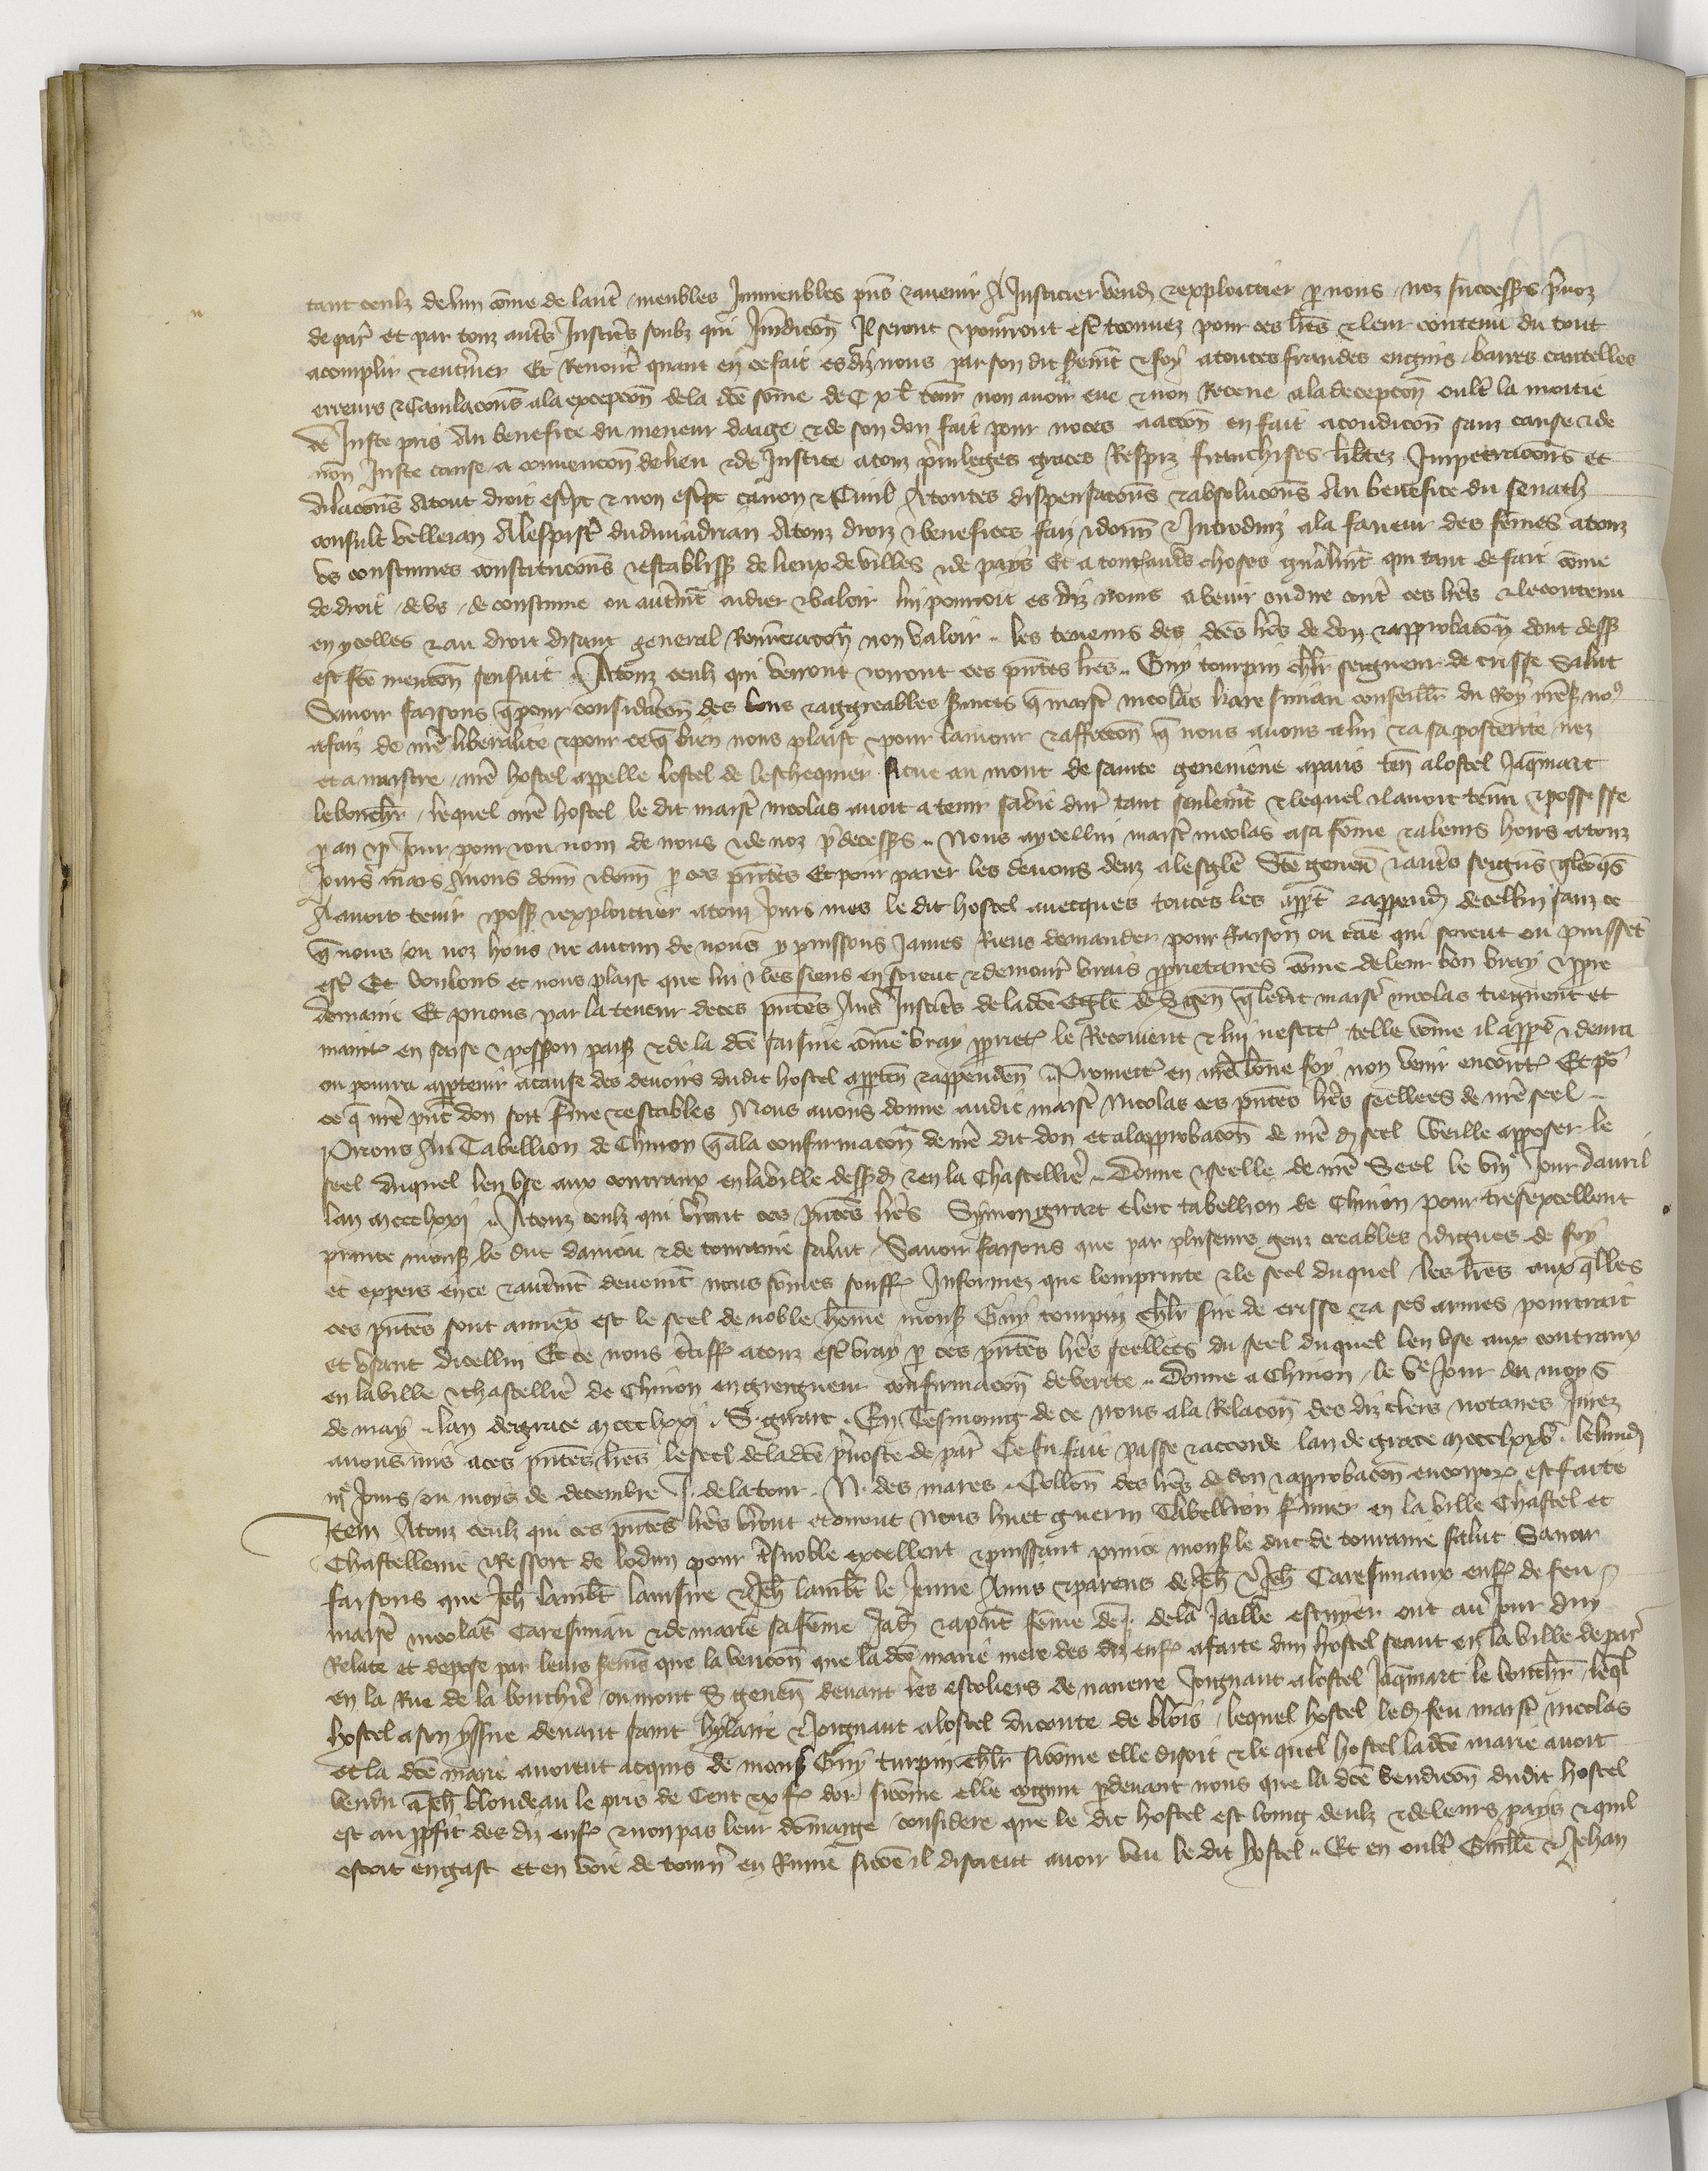 tant ceulz de lun cõme de laut̃ meubles Immeubles pñs & avenir A Justicier vendre & exploictier p nous noz successrs p̃voz
de par̃ et par touz aut̃s Justic̃s soubz qui Jur̃diction Il seront & pourront est̃ trouvez pour ces lr̃es & leur contenu du tout
acomplir & enter̃iner Et Renonc̃ quant en ce fait es diz noms par son dit serem̃t & foy a toutes fraudes engins barres cautelles
erreurs & Cavilacõns a la excepcõn de la dc̃e sõme de C x l t̃our non avoir eue & non Receue a la decepcõn oult̃ la moitie
de Juste pris Au benefice du meneur daage & de son don fait pour noces a actõn en fait a condicõn sanz cause & de
non Juste cause a convencõn de lieu & de Justice a touz p̃vileges graces Respiz franchises lib̃tez Impetracõns et
dilacõns A tout droit esc̃pt & non esc̃pt canon & Civil A toutes dispensacõns & absolucõns Au benefice du senath
consult velleian A lespist̃ du divi adrian A touz droiz & benefices faiz & donñ & Introduiz a la faveur des fẽmes a touz
us coustumes constitucõns & establiss de lieux de villes & de pays Et a toutes aut̃s choses gñalment qui tant de fait cõme
de droit de us de coustume ou aut̃ment aidier & valoir lui pourroit es diz noms a venir ou dire cont̃ ces lr̃es & le contenu
en ycelles & au droit disant general Renunciacõn non valoir les teneurs des dc̃es lr̃es de don & approbacõn dont dess
est fc̃e mencõn sensuit A touz ceulz qui verront & orront ces pñtes lr̃es Guy tourpin chlr̃ seigneur de crisse Salut
Savoir faisons q̃ pour consideracõn des bons & aggreables services q̃ maist̃ nicolas karesmiau conseill̃r du Roy nr̃e nos
a faiz de nr̃e liberalite & pour ce q̃ bien nous plaist & pour lamour & affeccõn q̃ nous avons a lui & a sa posterite nez
et a naistre nr̃e hostel appelle lostel de leschequier situe au mont de sainte genevieve a paris ten̄ a lostel Jaq̃mart
le bouch̃r lequel nr̃e hostel le dit maist̃ nicolas avoit a tenir sa vie dur̃ tant seulem̃t & lequel il avoit tenu & possesse
p an & p Jour pour & ou nom de nous & de noz p̃decess̃s Nous a ycellui maist̃ nicolas a sa fẽme & a leurs hoirs a touz
Jours mais Avons donñ & donñ p ces pñtes Et pour paier les devoirs deuz a lesgl̃e Ste genev̄ & aut̃s seign̄s
A avoir tenir & poss & exploictier a touz Jours mes le dit hostel avecques toutes les app̃t & append dicellui sanz ce
q̃ nous ou noz hoirs ne aucun de nous y puissons James Riens demander pour Raison ou ca͂e qui soient ou puissẽt
est̃ Et voulons et nous plaist que lui & les siens en soient & demour̃ vrais pprietaires cõme de leur bon vray & ppre
demaine Et prions par la teneur de ces pñtes Aus Justic̃s de la dc̃e Egl̃e de S gen̄ q̃ ledit maist̃ nicolas tiegnent et
maint en saise & possion pais & de la dc̃e saisine cõme vray ppriet̃ le Recoivent & lui telle cõme il app̃t & devra
ou pourra apptenir a cause des devoirs dudit hostel appten̄ & appenden̄ Promect en nr̃e bõne foy non venir encont̃ Et po
ce q̃ nr̃e pñt don soit ferme & estables Nous avons donne audit maist̃ Nicolas ces pñtes lr̃es seellees de nr̃e seel
Prions Au Tabellion de Chinon q̃ a la confirmacõn de nr̃e dit don et a lapprobacõn de nr̃e d seel Weille apposer le
seel duquel len use aux contraux en la ville dessd & en la Chastell̃ie Donne & seelle de nr̃e Seel le viije Jour davril
lan mccclxxj A touz ceulz qui v̄ront ces pñtes lr̃es Symon girart clerc tabellion de Chinon pour tresexcellent
prince mons le duc daniou & de touraine salut Savoir faisons que par pluseurs genz creables & dignes de foy
et expers en ce & aut̃ment deuem̃t nous sõmes souff Informez que lemprinte & le seel duquel les lr̃es aux q̃lles
ces pñtes sont annex̃ est le seel de noble hõme mons Guy tourpin chlr̃ sire de crisse & a ses armes pourtrait
et usant dicellui Et ce nous t̃tiff a touz est̃ vray p ces pñtes lr̃es seellees du seel duquel len use aux contraux
en la ville & chastell̃ie de Chinon en greigneur confirmacõn de verite Donne a Chinon le ve Jour du moys
de may lan de grace mccclxxj S. girart En Tesmoing de ce Nous a la Relacõn des diz clers notaires Jurez
avons mis a ces pñtes lr̃es le seel de la dc̃e p̃voste de par̃ Ce fu fait passe & accorde lan de grace mccclxxv le lundi
iije Jours ou moys de decembre J. de la tour N. des mares Collon̄ des lr̃es de don & approbacõn encorpor est faicte
Item A touz ceulz qui ces pñtes lr̃es v̄ront et orront Nous huet guerin Tabellion fermier en la ville Chastel et
Chastellenie & Ressort de lodun pour t̃snoble excellent & puissant prince mons le duc de touraine salut Savoir
faisons que Jeh lamb̃t lainsne & Jeh lamb̃t le Jeune Amis & parens de Jeh & Jeh Caresmiaux enf̃ de feu
maist̃ nicolas Caresmiau & de marie sa fẽme Jad & apñt fẽme de J. de la Jaille escuyer ont au Jour duy
Relate et depose par leurs serem̃s que la vencõn que la dc̃e marie mere des diz enf̃ a faicte dun hostel seant en la ville de par̃
en la Rue de la bouch̃ie ou mont S genev̄ devant les escoliers de navere Joignant a lostel Jaq̃mart le bouch̃r leq̃l
hostel a son yssue devant saint hylaire & Joignant a lostel du conte de blois lequel hostel led feu maist̃ nicolas
et la dc̃e marie avoient acquis de mons Guy turpin chlr̃ si cõme elle disoit & le quel hostel la dc̃e marie avoit
vendu a Jeh blondeau le pris de Cent & x f̃ dor si cõme elle cognut pdevant nous que la dc̃e vendicõn dudit hostel
est au pfit des diz enf̃ & non pas leur dõmage considere que le dit hostel est loing deulz & de leurs pays & quil
estoit en gast et en voie de tourn̄ en Ruine si cõe il disoient avoir veu le dit hostel Et en oult̃ Guill̃e & Jehan